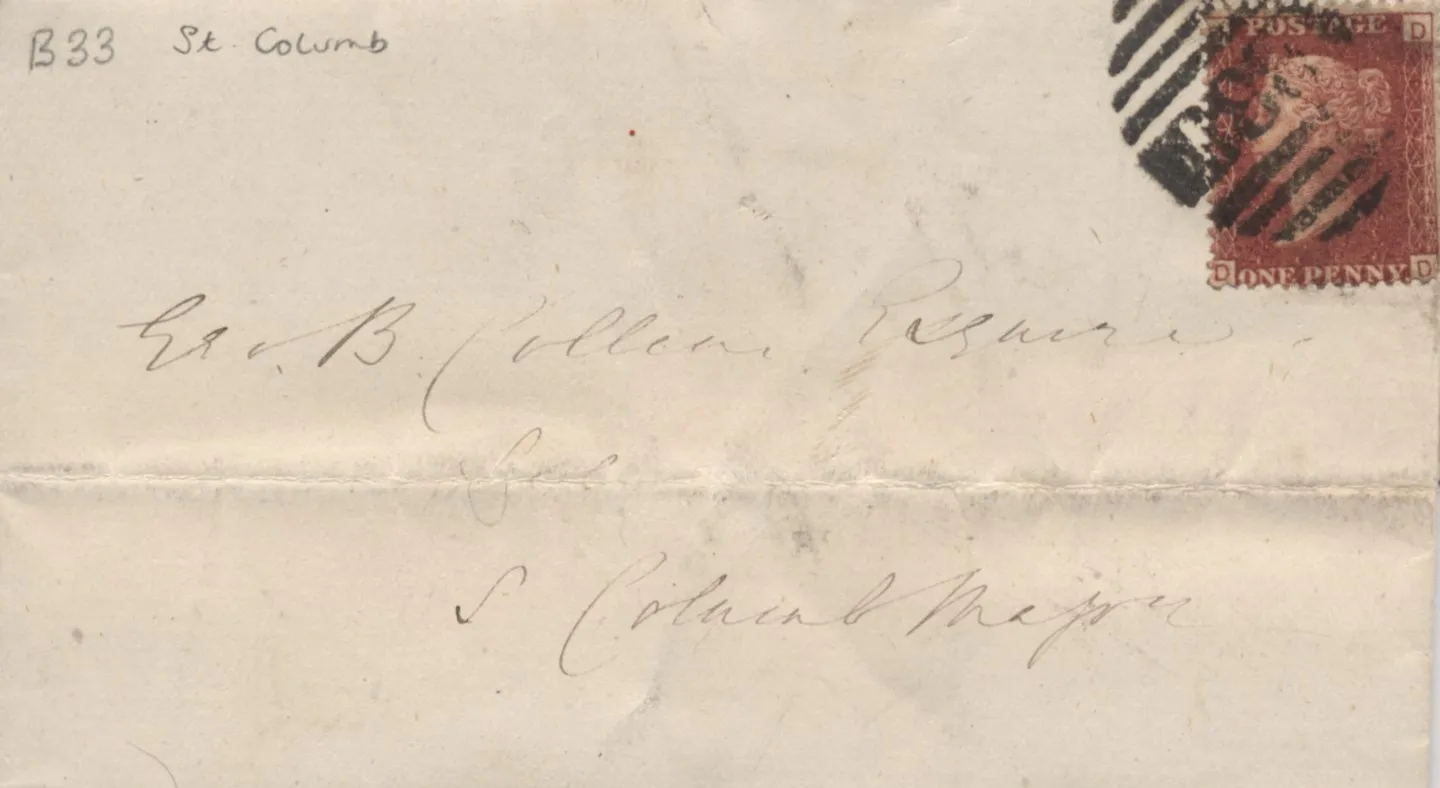 B33 St. Columb
POSTAGE D
D ONE PENNY D
Geo. B. Collins Esquire.
S Columb Major